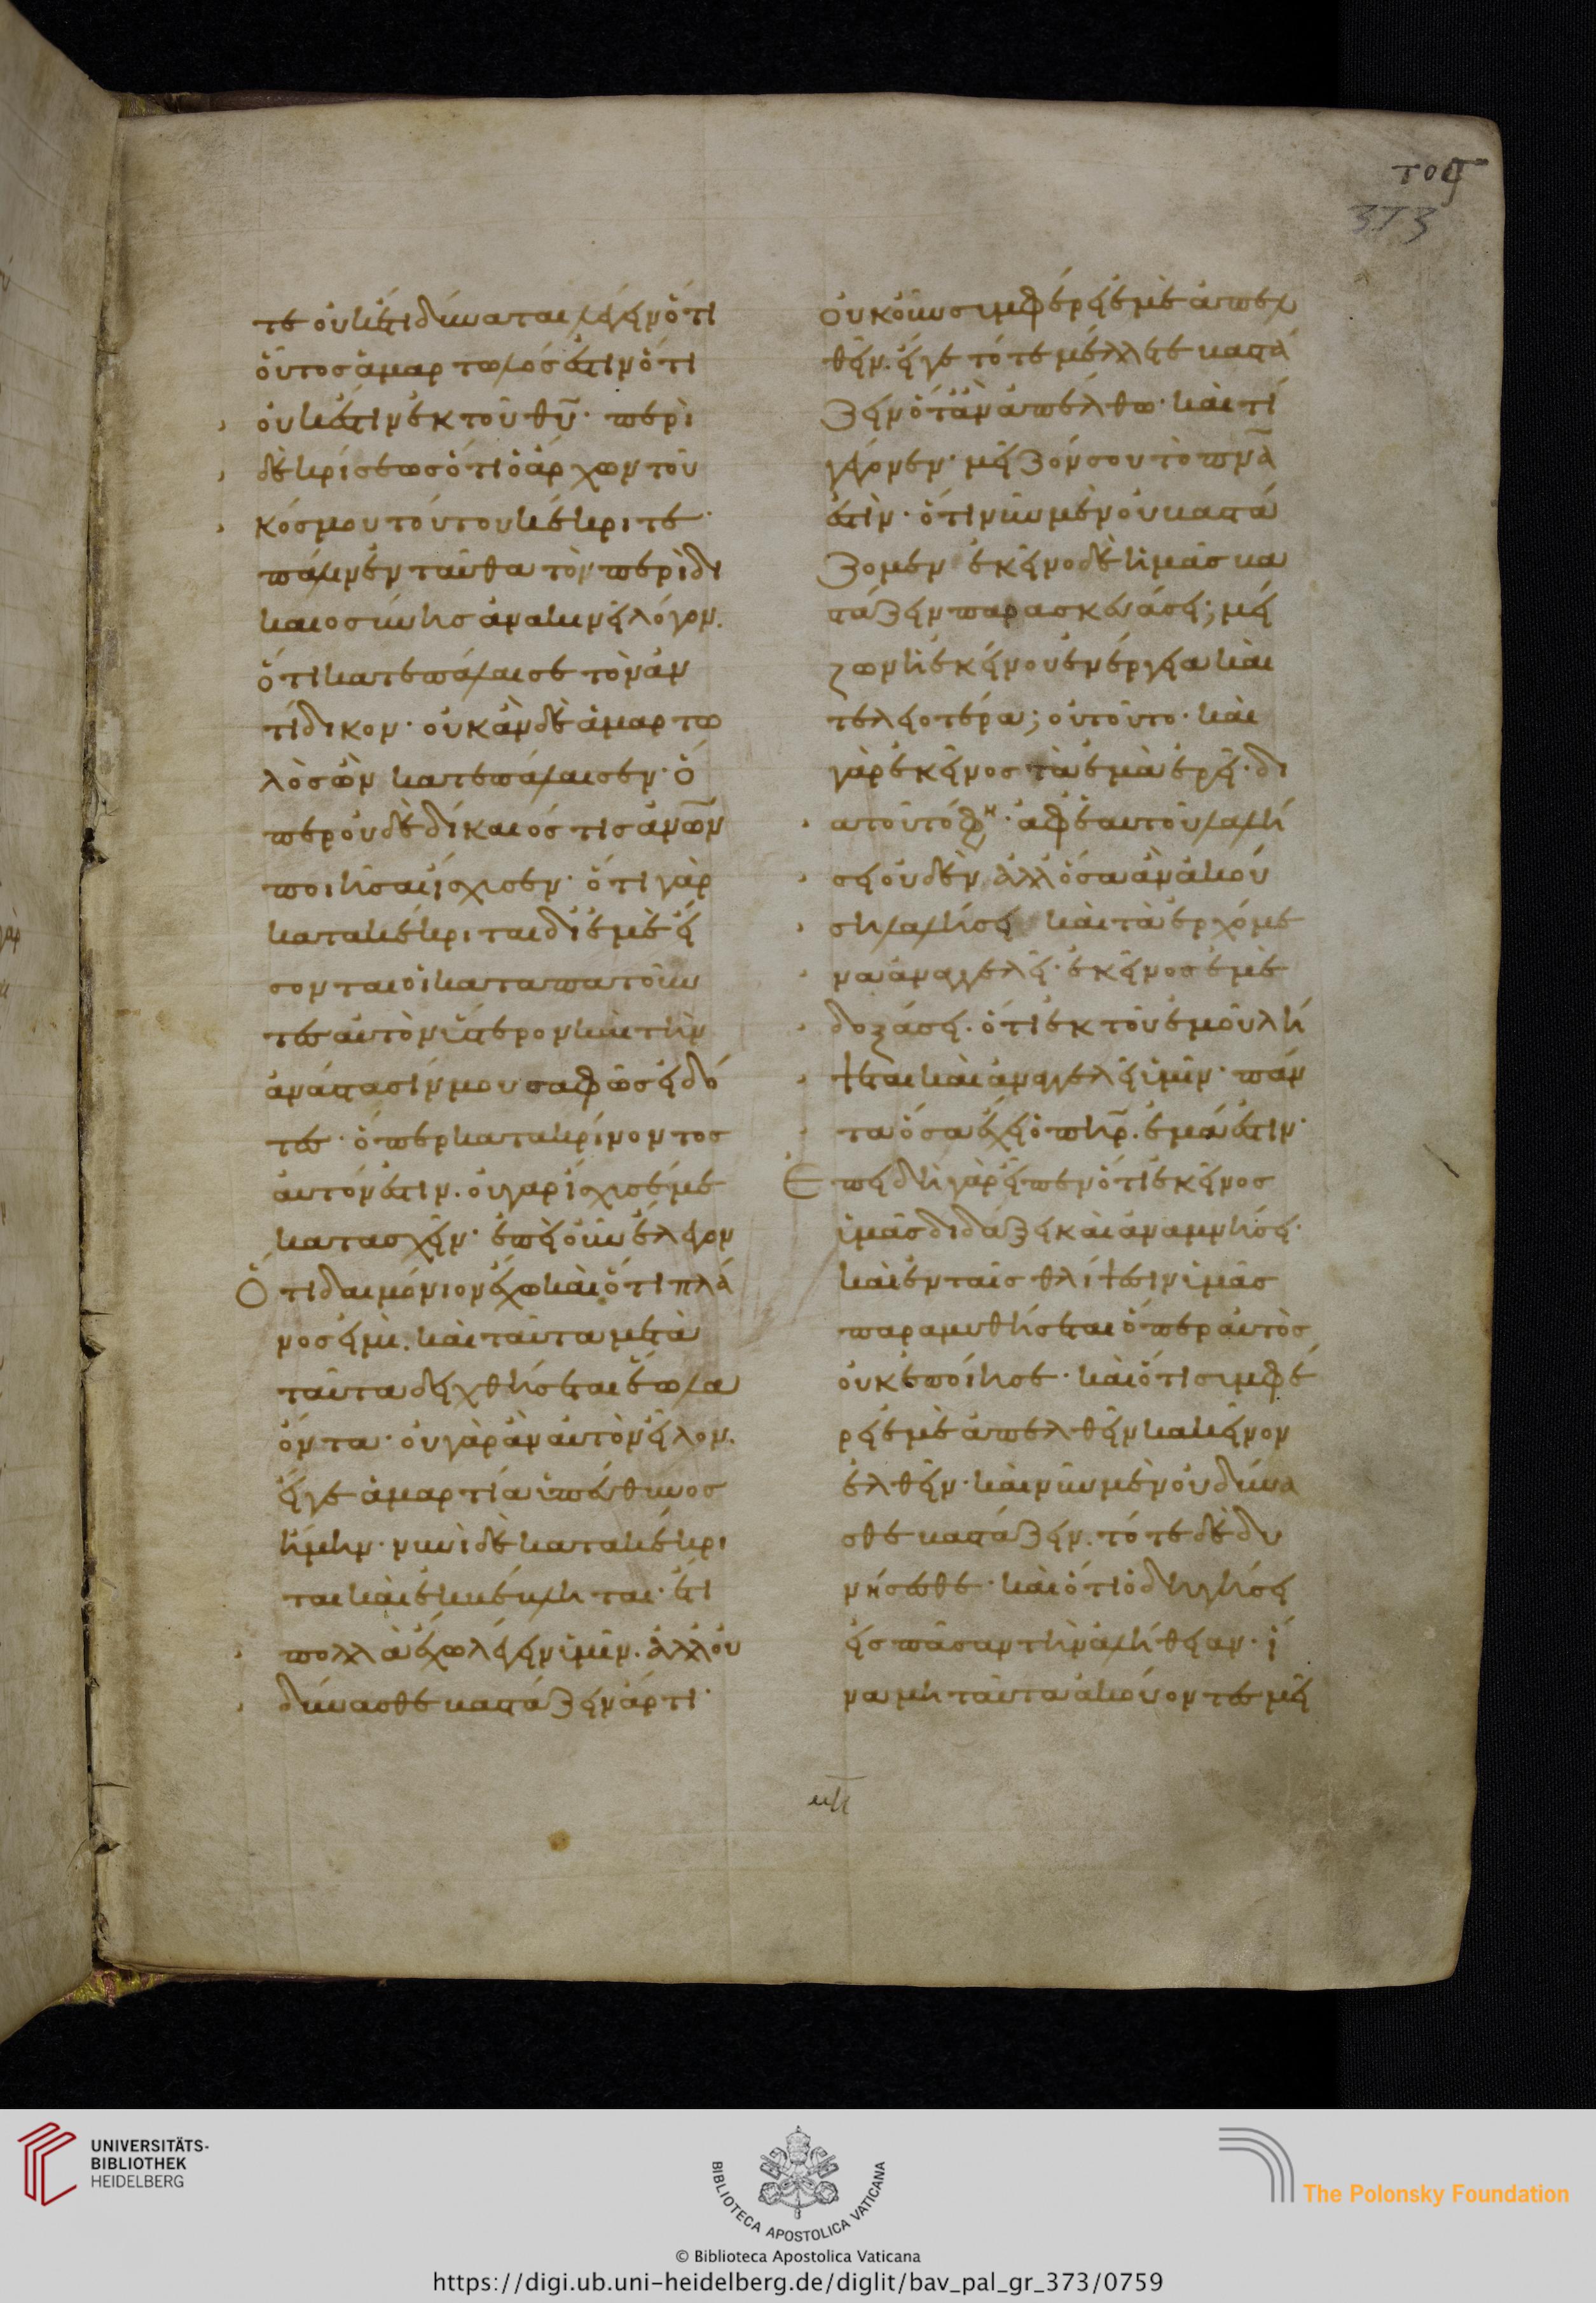 τος
373
τε οὐκέτι δύναται λέγειν ὅτι
οὗτος ἁμαρτωλός ἐστιν ὅτι
οὐκ ἔστιν ἐκ τοῦ θῦ· περὶ
δὲ κρίσεως ὅτι ὁ ἄρχων τοῦ
κόσμου τούτου κέκριται·
πάλιν ἐνταῦθα τὸν περὶ δι
καιοσύνης ἀνακινεῖ λόγον.
ὅτι κατεπάλαισε τὸν ἀν
τίδικον· οὐκ ἂν δὲ ἁμαρτω
λὸς ὢν κατεπάλαισεν· ὅ
περ οὐδὲ δίκαιός τις ἀνων
ποιῆσαι ἴσχυσεν· ὅτι γὰρ
κατακέκριται δι᾽ ἐμὲ εἴ
σονται οἱ καταπατοῦν
τες αὐτὸν ὕστερον καὶ τὴν
ἀνάστασίν μου σαφῶς εἰδό
τες· ὅπερ κατακρίνοντος
αὐτόν ἐστιν. οὐ γαρ ἴσχυσέ με
κατασχεῖν· ἐπεὶ οὖν ἔλεγον
Ὅτι δαιμόνιον ἔχω καὶ ὅτι πλά
νος εἰμὶ. καὶ ταῦτα μετὰ
ταῦτα δειχθήσεται ἕωλα
ὄντα· οὐ γὰρ ἂν αὐτὸν εἷλον.
εἴγε ἁμαρτία ὑπεύθυνος
ἤμην· νυνὶ δὲ κατακέκρι
ται καὶ ἐκβέβληται· ἔτι
πολλὰ ἔχω λέγειν ὑμῖν. ἀλλ᾽ οὐ
δύνασθε βαστάζειν ἄρτι·
οὐκοῦν συμφέρει ἐμὲ ἀπελ
θεῖν. εἴγε τότε μέλλετε βαστά
ζειν ὅταν ἀπέλθω· καὶ τί
γέγονεν· μεῖζόν σου τὸ πνα
ἐστὶν· ὅτι νῦν μὲν οὐ βαστά
ζομεν ἐκεῖνο δὲ ἡμᾶς βα
στάζειν παρασκευάσει; μεί
ζων ἡ ἐκείνου ἐνέργεια καὶ
τελειοτέρα; οὐ τοῦτο· καὶ
γὰρ ἐκεῖνος τὰ ἐμὰ ἐρεῖ· δι
α τοῦτό φη· ἀφ᾽ ἑαυτοῦ λαλή
σει οὐδὲν ἀλλ᾽ ὅσα ἂν ἀκού
ση λαλήσει καὶ τὰ ἐρχόμε
να ἀναγγελεῖ· ἐκεῖνος ἐμὲ
δοξάσει. ὅτι ἐκ τοῦ ἐμοῦ λή
ψεται καὶ ἀναγγελεῖ ὑμῖν· πάν
τα ὅσα ἔχει ὁ πηρ. ἐμά ἐστιν·
Ἐπειδὴ γὰρ εἶπεν ὅτι ἐκεῖνος
ὑμᾶς διδάξει καὶ ἀναμνήσει·
καὶ ἐν ταῖς θλίψεσιν ὑμᾶς
παραμυθήσεται ὅπερ αὐτὸς
οὐκ ἐποίησε· καὶ ὅτι συμφέ
ρει ἐμὲ ἀπελθεῖν κακεῖνον
ἐλθεῖν· καὶ νῦν μὲν οὐ δύνα
σθε βαστάζειν. τότε δὲ δυ
νήσεσθε· καὶ ὅτι ὁδηγήσει
εἰς πᾶσαν τὴν ἀλήθειαν· ἵ
να μη ταῦτα ἀκούοντες μεῖ
μη
UNIVERSITÄTS-
BIBLIOTHEK
HEIDELBERG
BIBLIOTECA APOSTOLICA VATICANA
The Polonsky Foundation
© Biblioteca Apostolica Vaticana
https://digi.ub.uni-heidelberg.de/diglit/bav_pal_gr_373/0759